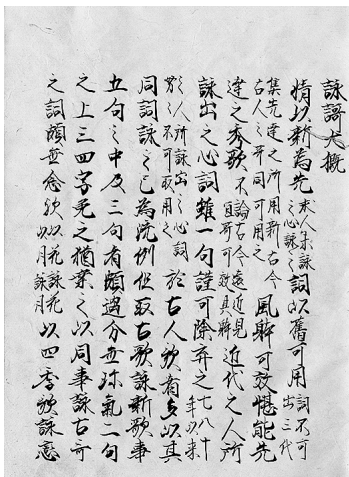 詠謌大概
情以新為先求人未詠之心詠之詞以舊可用詞不可出三代
集先達之所用新古今古人之哥同可用之風躰可效堪能先
達之秀歌不論古今遠近見宜哥可效其躰近代之人所
詠出之心詞雖一句謹可除弃之七八十年以来
之人所詠出之心詞努々不可取用之於古人歌者多以其
同詞詠之已為流例但取古歌詠新歌事
五句之中及三句者頗過分無珍氣二句
之上三四字免之猶案之以同事詠古哥
之詞頗無念歟以花詠花以月詠月以四季歌詠恋